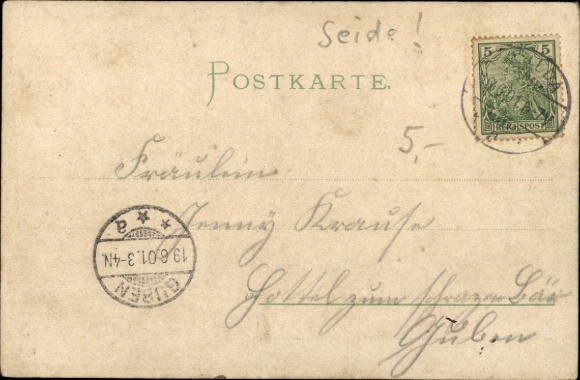 Seide!
5 5
REICHSPOST
POSTKARTE.
5,-
Fräulein
Jenny Krause
Hottel zum schwazen Bär
Guben
* * a
19.6.01.3-4N.
GUBEN